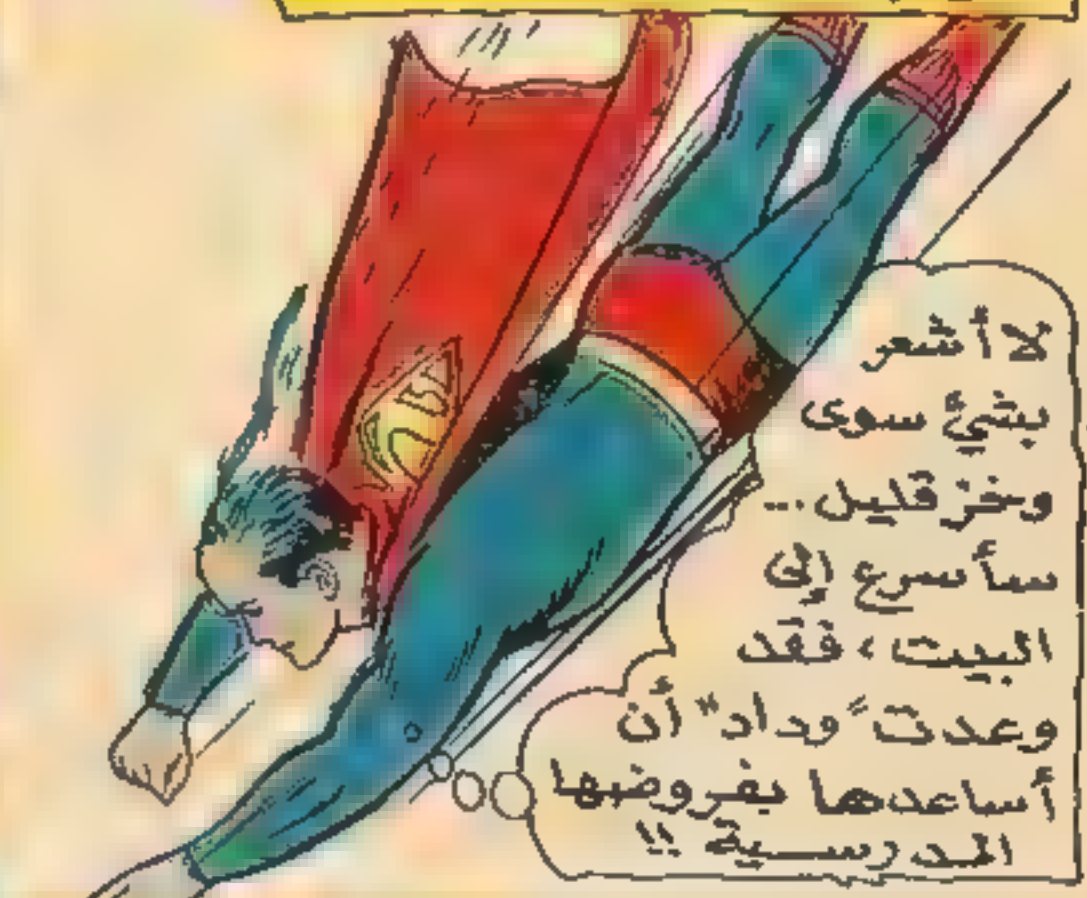 لا أشعر
بشيءٍ سوى
وخز قليل...
سأسرع إلى
البيت، فقد
وعدت "وداد" أن
أساعدها بفروضها
المدرسية !!